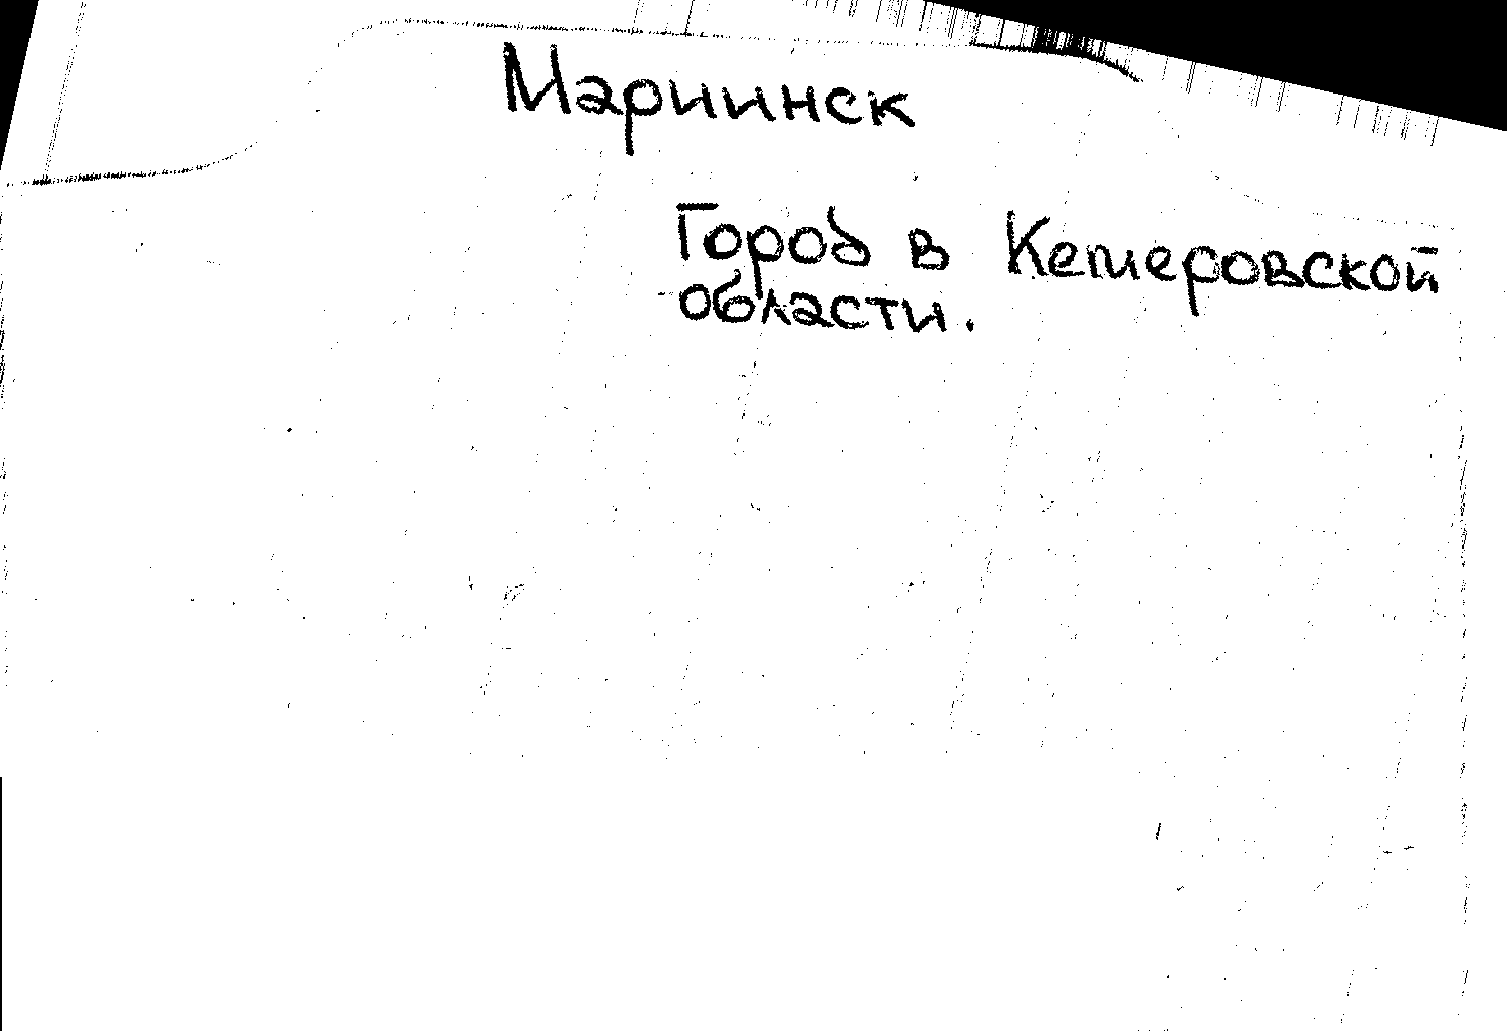 Мариинск
Город в Кемеровской
области.